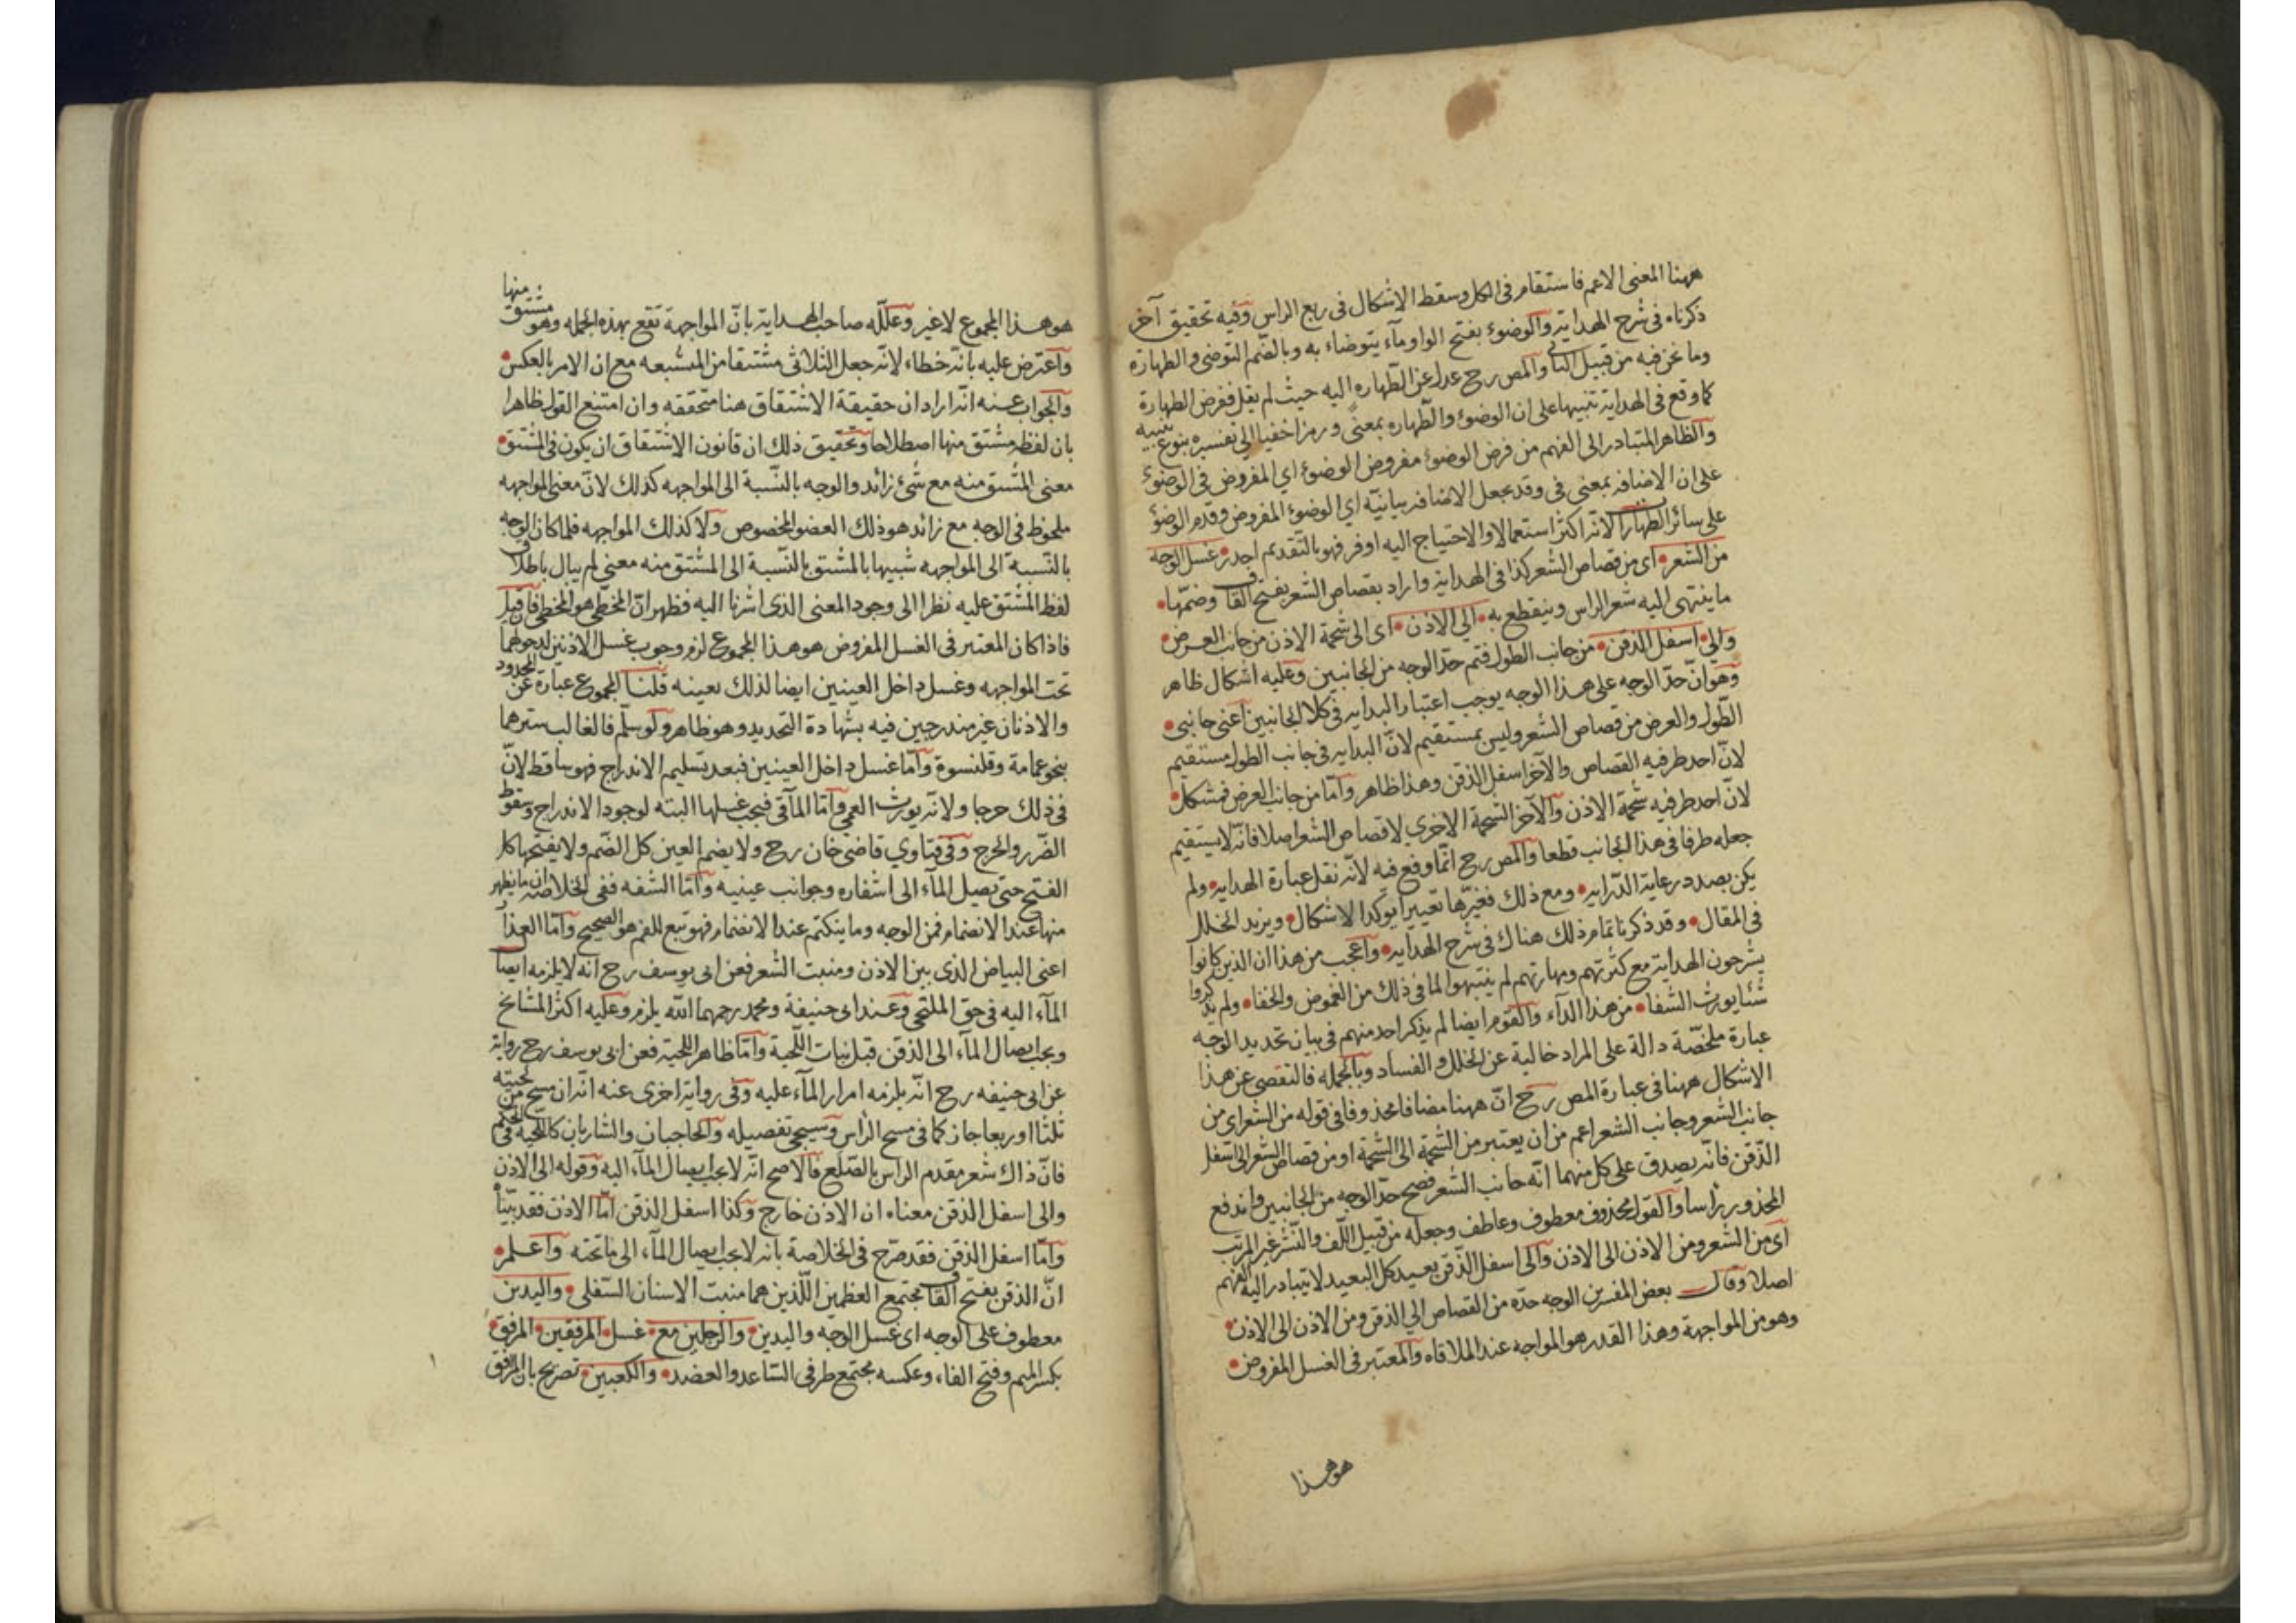 ههنا المعنى الاعم فاستقام فى الكل وسقط الاشكال فى ربع الراس وفيه تحقيق آخر
ذكرناه فى شرح الهداية والوضوء بفتح الواو ماء يتوضاء به وبالضم التوضى والطهارة
وما نحن فيه من قبيل الثانى والمص رح عدل عن الطهاره اليه حيث لم يقل ففرض الطهارة
كما وقع فى الهداية تنبيها على ان الوضوء والطهاره بمعنى ورمزا خفيا الى تفسيره بنوع تنبيه
والظاهر المتبادر الى الفهم من فرض الوضوء مفروض الوضوء اي المفروض فى الوضوء
على ان الاضافه بمعنى فى وقد يجعل الاضافه بيانيه اي الوضوء المفروض وقدم الوضؤ
على سائر الطهارات لانه اكثر استعمالا والاحتياج اليه اوفر فهو بالتقديم اجدر غسل الوجه
من الشعر اى من قصاص الشعر كذا فى الهداية واراد بقصاص الشعر بفتح القاف وضمها
ما ينتهى اليه شعر الراس وينقطع به الى الاذن اى الى شحمة الاذن من جانب العرض
والى اسفل الذقن من جانب الطول فتم حد الوجه من الجانبين وعليه اشكال ظاهر
وهو ان حد الوجه على هذا الوجه يوجب اعتبار البدايه فى كلا الجانبين اعنى جانبى
الطول والعرض من قصاص الشعر وليس بمستقيم لان البدايه فى جانب الطول مستقيم
لان احد طرفيه القصاص والآخر اسفل الذقن وهذا ظاهر واما من جانب العرض فمشكل
لان احد طرفيه شحمة الاذن والآخر الشحمة الاخرى لا قصاص الشعر اصلا فانه لا يستقيم
جعله طرفا فى هذا الجانب قطعا والمص رح انما وقع فيه لانه نقل عبارة الهدايه ولم
يكن بصدد رعاية الدرايه ومع ذلك فغيرها تغييرا يوكد الاشكال ويزيد الخلل
فى المقال وقد ذكرنا تمام ذلك هناك فى شرح الهدايه واعجب من هذا ان الذين كانوا
يشرحون الهداية مع كثرتهم ومهارتهم لم ينتبهوا لما فى ذلك من الغموض والخفا ولم يذكروا
شئا يورث الشفا من هذا الداء والقوم ايضا لم يذكر احد منهم فى بيان تحديد الوجه
عبارة ملخصة دالة على المراد خالية عن الخلل والفساد وبالجمله فالتفصى عن هذا
الاشكال ههنا فى عبارة المص رح ان ههنا مضافا محذوفا فى قوله من الشعر اى من
جانب الشعر وجانب الشعر اعم من ان يعتبر من الشحمة الى الشحمة او من قصاص الشعر الى اسفل
الذقن فانه يصدق على كل منهما انه جانب الشعر فصح حد الوجه من الجانبين واندفع
المحذور راسا والقول بحذف معطوف وعاطف وجعله من قبيل اللف والنشر غير المرتب
اى من الشعر ومن الاذن الى الاذن والى اسفل الذقن بعيد كل البعيد لا يتبادر اليه الفهم
اصلا وقال بعض المفسرين الوجه حده من القصاص الى الذقن ومن الاذن الى الاذن
وهو من المواجهة وهذا القدر هو المواجه عند الملاقاه والمعتبر فى الغسل المفروض
هو هذا
هو هذا المجموع لا غير وعلله صاحب الهداية بان المواجهة تقع بهذه الجمله وهو مشتق منها
واعترض عليه بانه خطاء لانه جعل الثلاثى مشتقا من المتشبعه مع ان الامر بالعكس
والجواب عنه انه اراد ان حقيقة الاشتقاق هنا متحققه وان امتنع القول ظاهرا
بان لفظه مشتق منها اصطلاحا وتحقيق ذلك ان قانون الاشتقاق ان يكون فى المشتق
معنى المشتق منه مع شئ زائد والوجه بالنسبة الى المواجهه كذلك لان معنى المواجهه
ملحوظ فى الوجه مع زائد هو ذلك العضو المخصوص ولا كذلك المواجهه فلما كان الوجه
بالنسبة الى المواجهه شبيها بالمشتق بالنسبة الى المشتق منه معنى لم يبال باطلاق
لفظ المشتق عليه نظرا الى وجود المعنى الذى اشرنا اليه فظهر ان المخطى هو المخطى فان قيل
فاذا كان المعتبر فى الغسل المفروض هو هذا المجموع لزم وجوب غسل الاذنين لدخولهما
تحت المواجهه وغسل داخل العينين ايضا لذلك بعينه قلنا المجموع عبارة عن المحدود
والاذنان غير مندرجين فيه بشهادة التحديد وهو ظاهر ولو سلم فالغالب سترهما
بنحو عمامة وقلنسوة واما غسل داخل العينين فبعد تسليم الاندراج فهو ساقط لان
فى ذلك حرجا ولانه يورث العمى واما المآقى فيجب غسلها البته لوجود الاندراج وسقوط
الضرر والحرج وفى فتاوي قاضى خان رح ولا يضم العين كل الضم ولا يفتحها كل
الفتح حتى يصيل الماء الى اشفاره وجوانب عينيه واما الشفه ففى الخلاصه ان ما يظهر
منها عند الانضمام فمن الوجه وما ينكتم عند الانضمام فهو تبع للفم هو الصحيح واما العذار
اعنى البياض الذى بين الاذن ومنبت الشعر فعن ابى يوسف رح انه لا يلزمه ايصال
الماء اليه فى حق الملتحى وعند ابى حنيفة ومحمد رحمهما الله يلزم وعليه اكثر المشايخ
ويجب ايصال الماء الى الذقن قبل نبات اللحية واما ظاهر اللحية فعن ابى يوسف رح رواية
عن ابى حنيفه رح انه يلزمه امرار الماء عليه وفى رواية اخرى عنه انه ان مسح من لحيته
ثلثا او ربعا جاز كما فى مسح الراس وسيجئ تفصيله والحاجبان والشاربان كاللحية فى الحكم
فان ذاك شعر مقدم الراس بالصلع فالاصح انه لا يجب ايصال الماء اليه وقوله الى الاذن
والى اسفل الذقن معناه ان الاذن خارج وكذا اسفل الذقن اما الاذن فقد بينا
واما اسفل الذقن فقد صرح فى الخلاصة بانه لا يجب ايصال الماء الى ما تحته واعلم
ان الذقن بفتح القاف مجتمع العظمين اللذين هما منبت الاسنان السفلى واليدين
معطوف على الوجه اى غسل الوجه واليدين والرجلين مع غسل المرفقين المرفق
بكسر الميم وفتح الفاء وعكسه مجتمع طرفى الساعد والعضد والكعبين تصريح بان المرفق